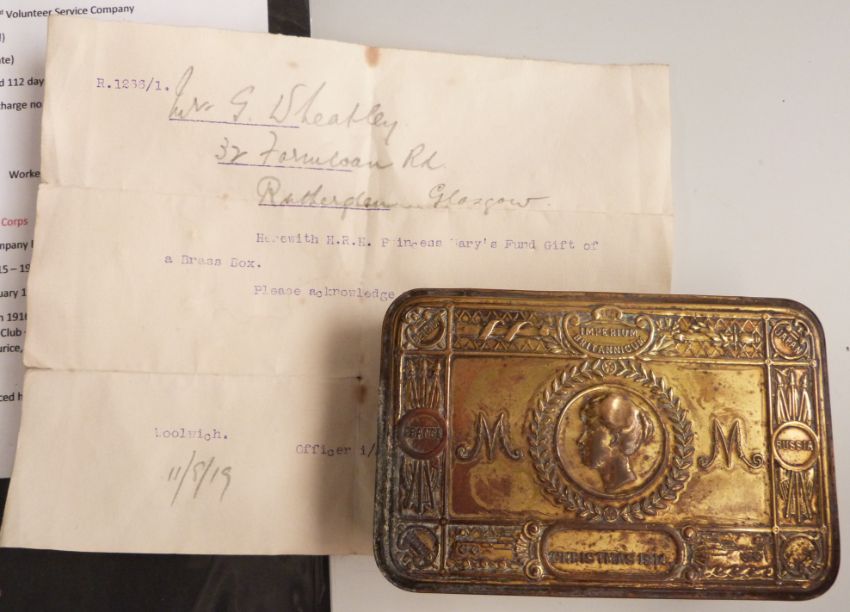 st Volunteer Service Company
d 112 day
charge no
Worke
Corps
mpany
15 – 19
uary 1
n 1916
Club
urice,
ced h
R.1236/1.
Mr G. Wheatley.
32 Farmloan Rd.
Rutherglen Glasgow.
Herewith H.R.H. Princess Mary's Fund Gift of
a Brass Box.
Please acknowledge
Woolwich.
Officer i/
11/8/19
IMPERIUM
BRITANNICUM
JAPAN
M
M
FRANCE
RUSSIA
CHRISTMAS 1914